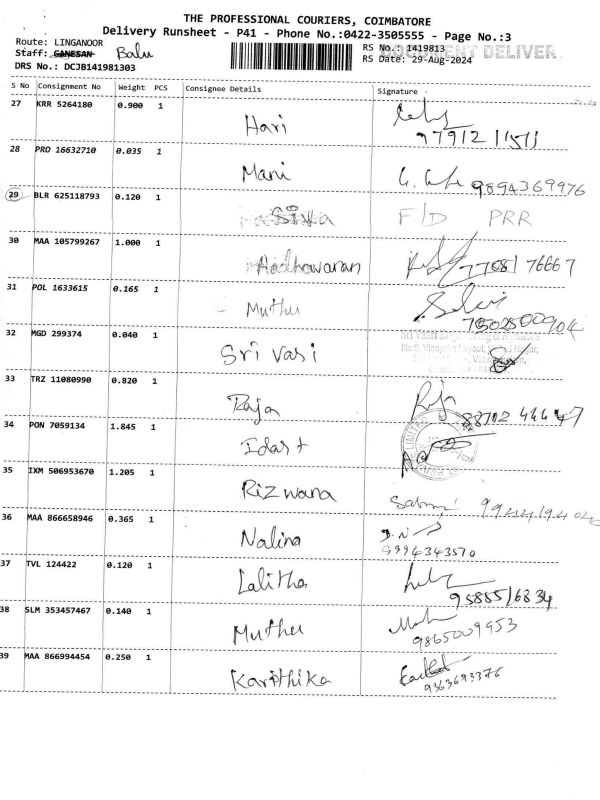 THE PROFESSIONAL COURIERS, COIMBATORE
Delivery Runsheet - P41 - Phone No.:0422-3505555 - Page No.:3
Route: LINGANOOR
RS No.: 1419813
DOCUMENT DELIVER
Staff: GANESAN Balu
RS Date: 29-Aug-2024
DRS No.: DCJB141981303
S No Consignment No Weight PCS Consignee Details Signature
27 KRR 5264180 0.900 1 Hari
28 PRO 16632710 0.035 1 Mani 9894369976
29 BLR 625118793 0.120 1 Siva F/D PRR
30 MAA 105799267 1.000 1 Aadhavanan 7708176667
31 POL 1633615 0.165 1 Muthu Selvi
32 MGD 299374 0.040 1 Sri Vasi
33 TRZ 11080990 0.820 1 Raja
34 PON 7059134 1.845 1
35 IXM 506953670 1.205 1 Rizwana
36 MAA 866658946 0.365 1 Nalina
9994343570
37 TVL 124422 0.120 1 Lalitha
38 SLM 353457467 0.140 1 Muthu
9865009953
39 MAA 866994454 0.250 1 Karithika
9363693376